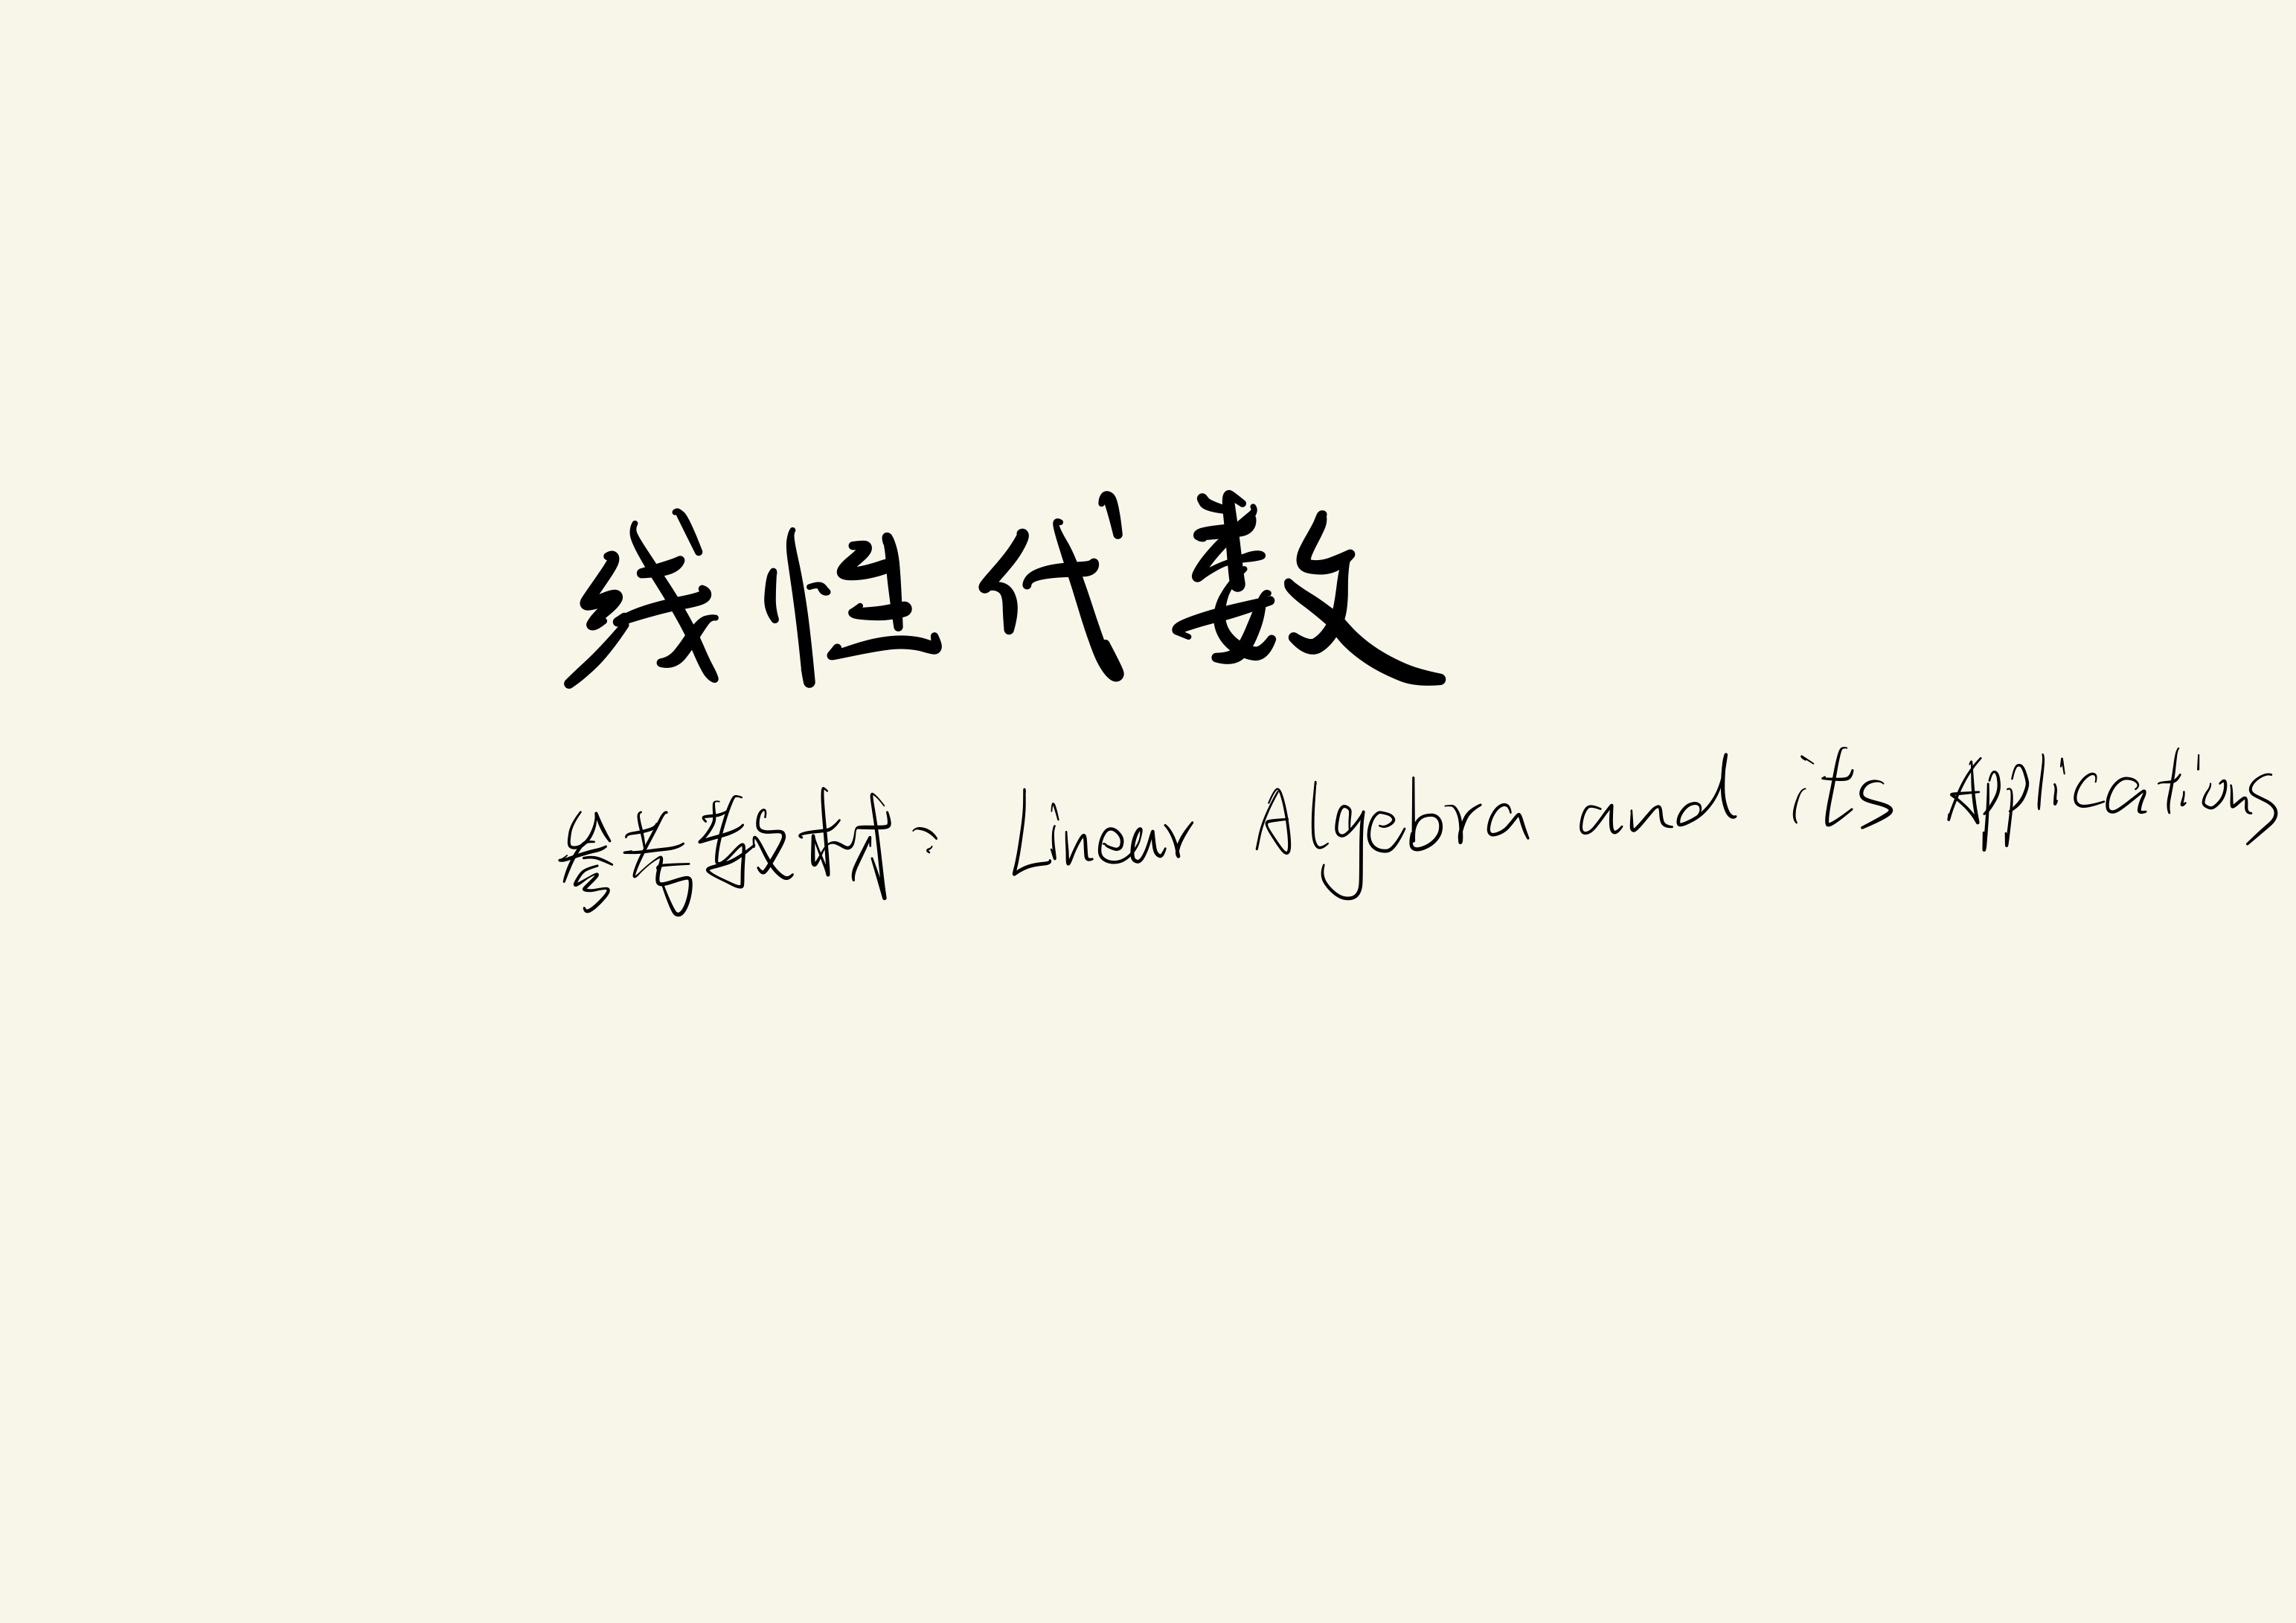 线性代数
参考教材：Linear Algebra and its Applications